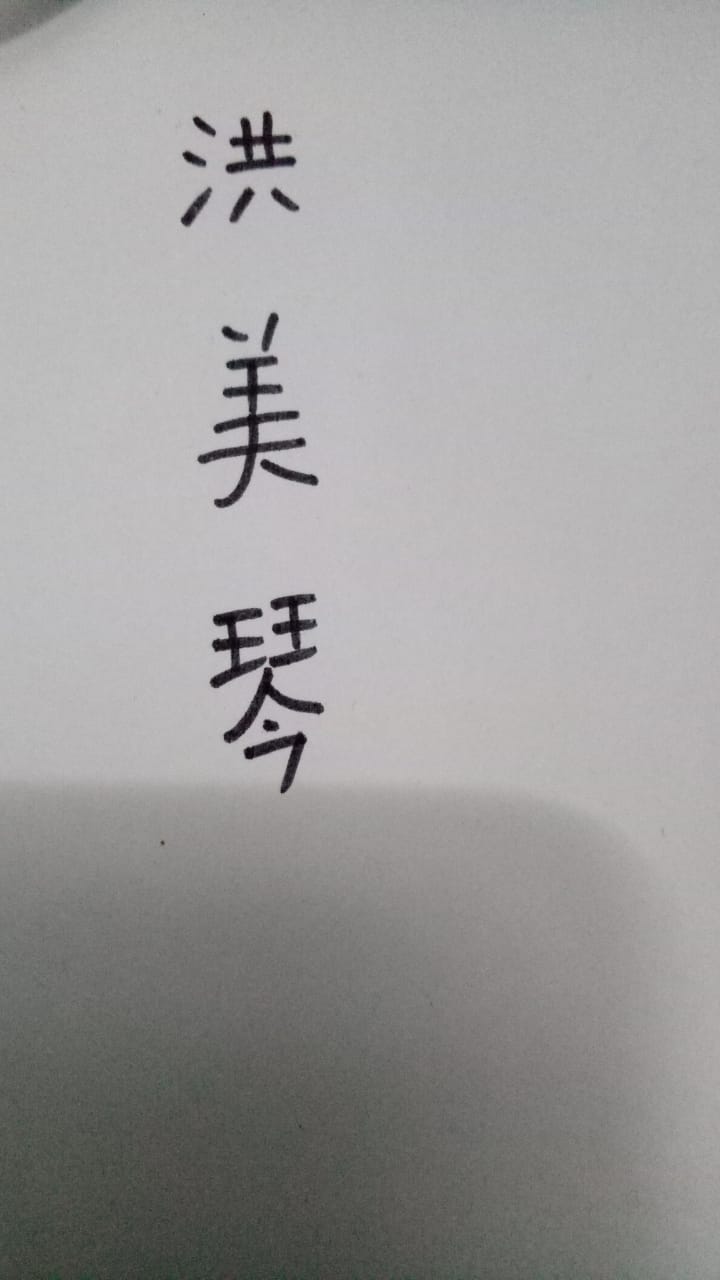 洪美琴